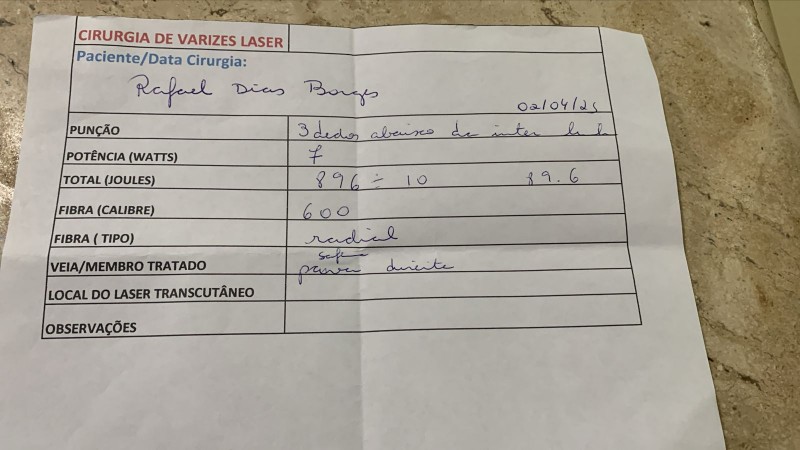 CIRURGIA DE VARIZES LASER
Paciente/Data Cirurgia:
Rafael Dias Borges
02/04/25
PUNÇÃO 3 dedos abaixo da inter
POTÊNCIA (WATTS) 7
TOTAL (JOULES) 896 ÷ 10 89.6
FIBRA (CALIBRE) 600
FIBRA ( TIPO) radial
safena
VEIA/MEMBRO TRATADO direita
LOCAL DO LASER TRANSCUTÂNEO
OBSERVAÇÕES